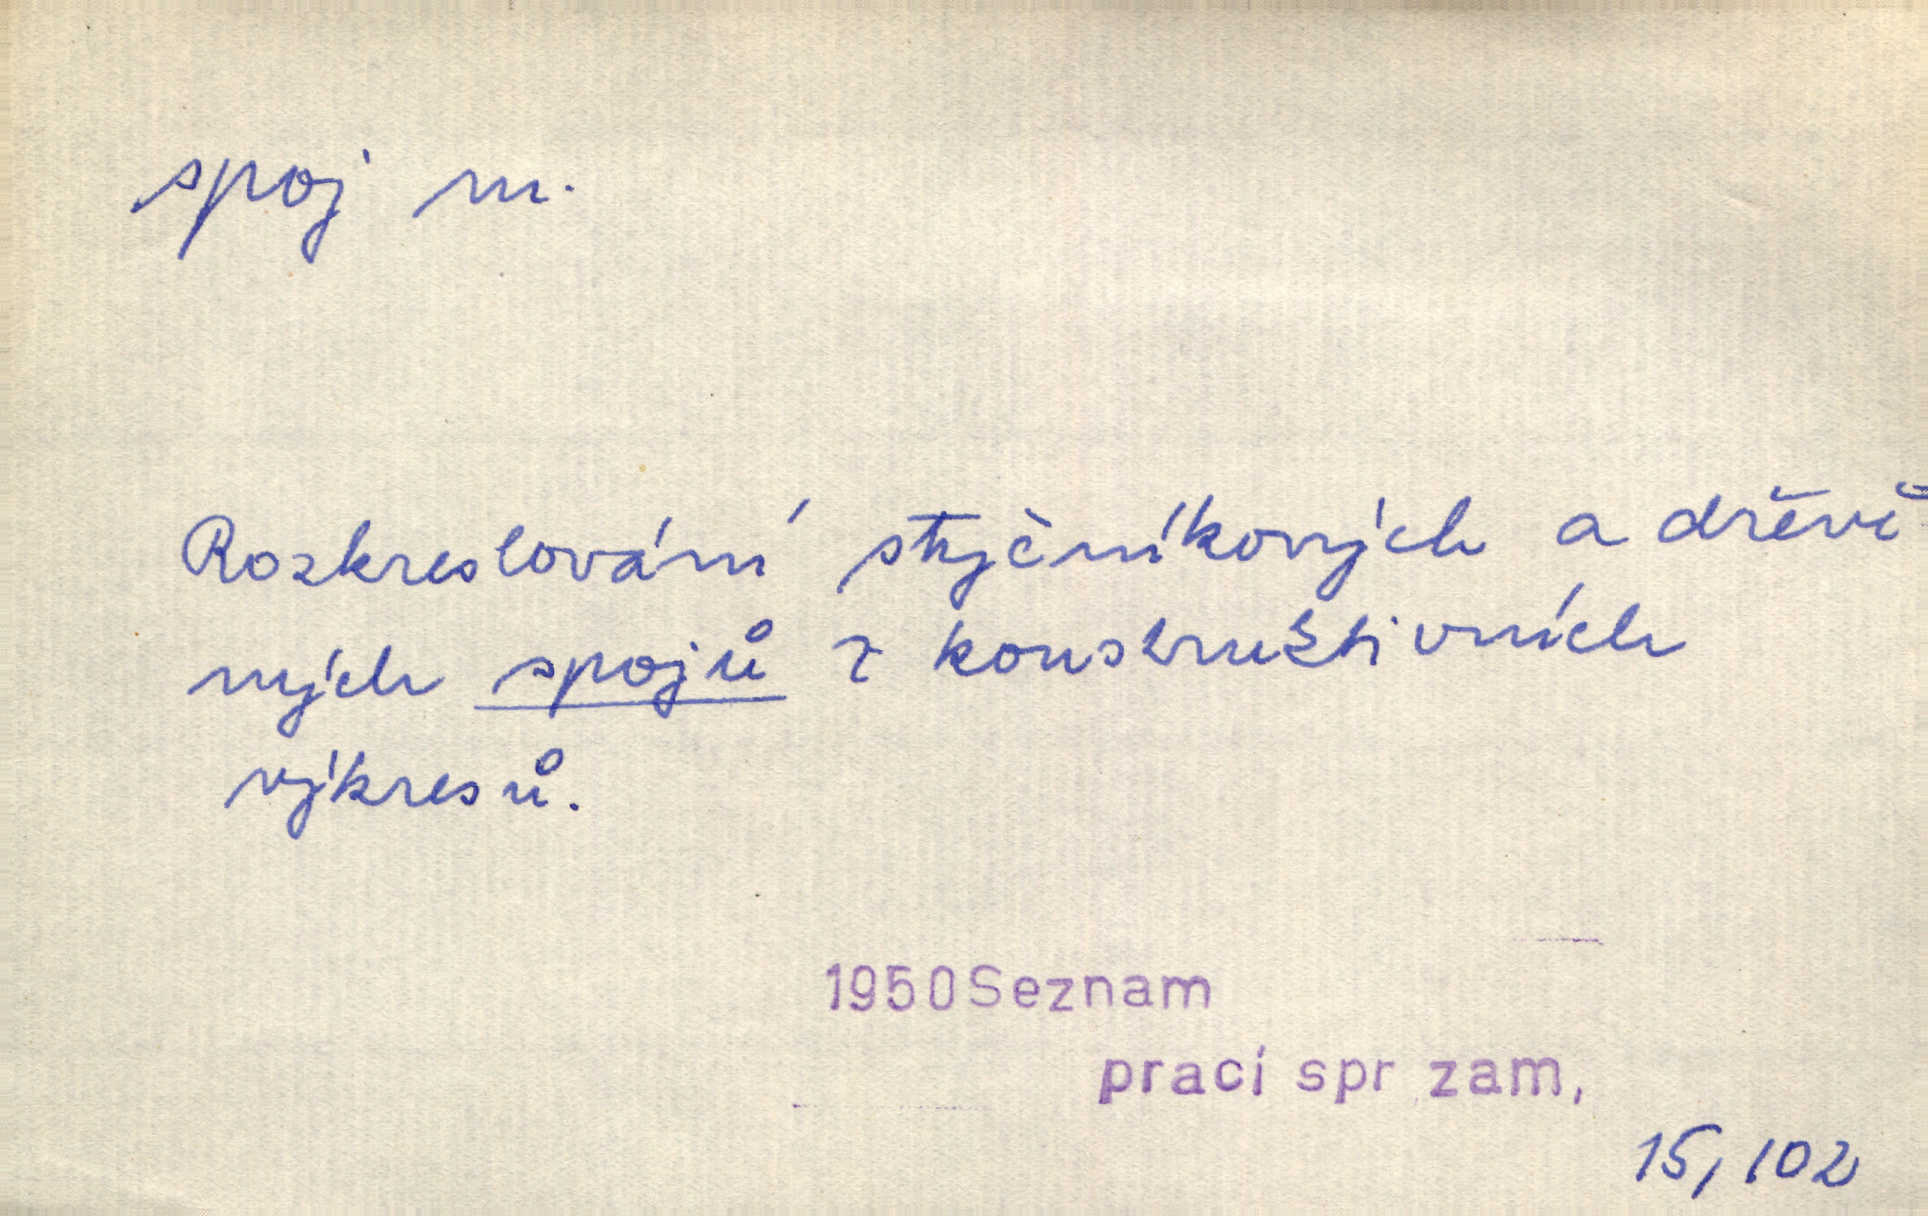 spoj m.
Rozkreslování styčníkových a dřevě
ných spojů z konstruktivních
výkresů.
1950 Seznam
prací spr zam,
15, 102